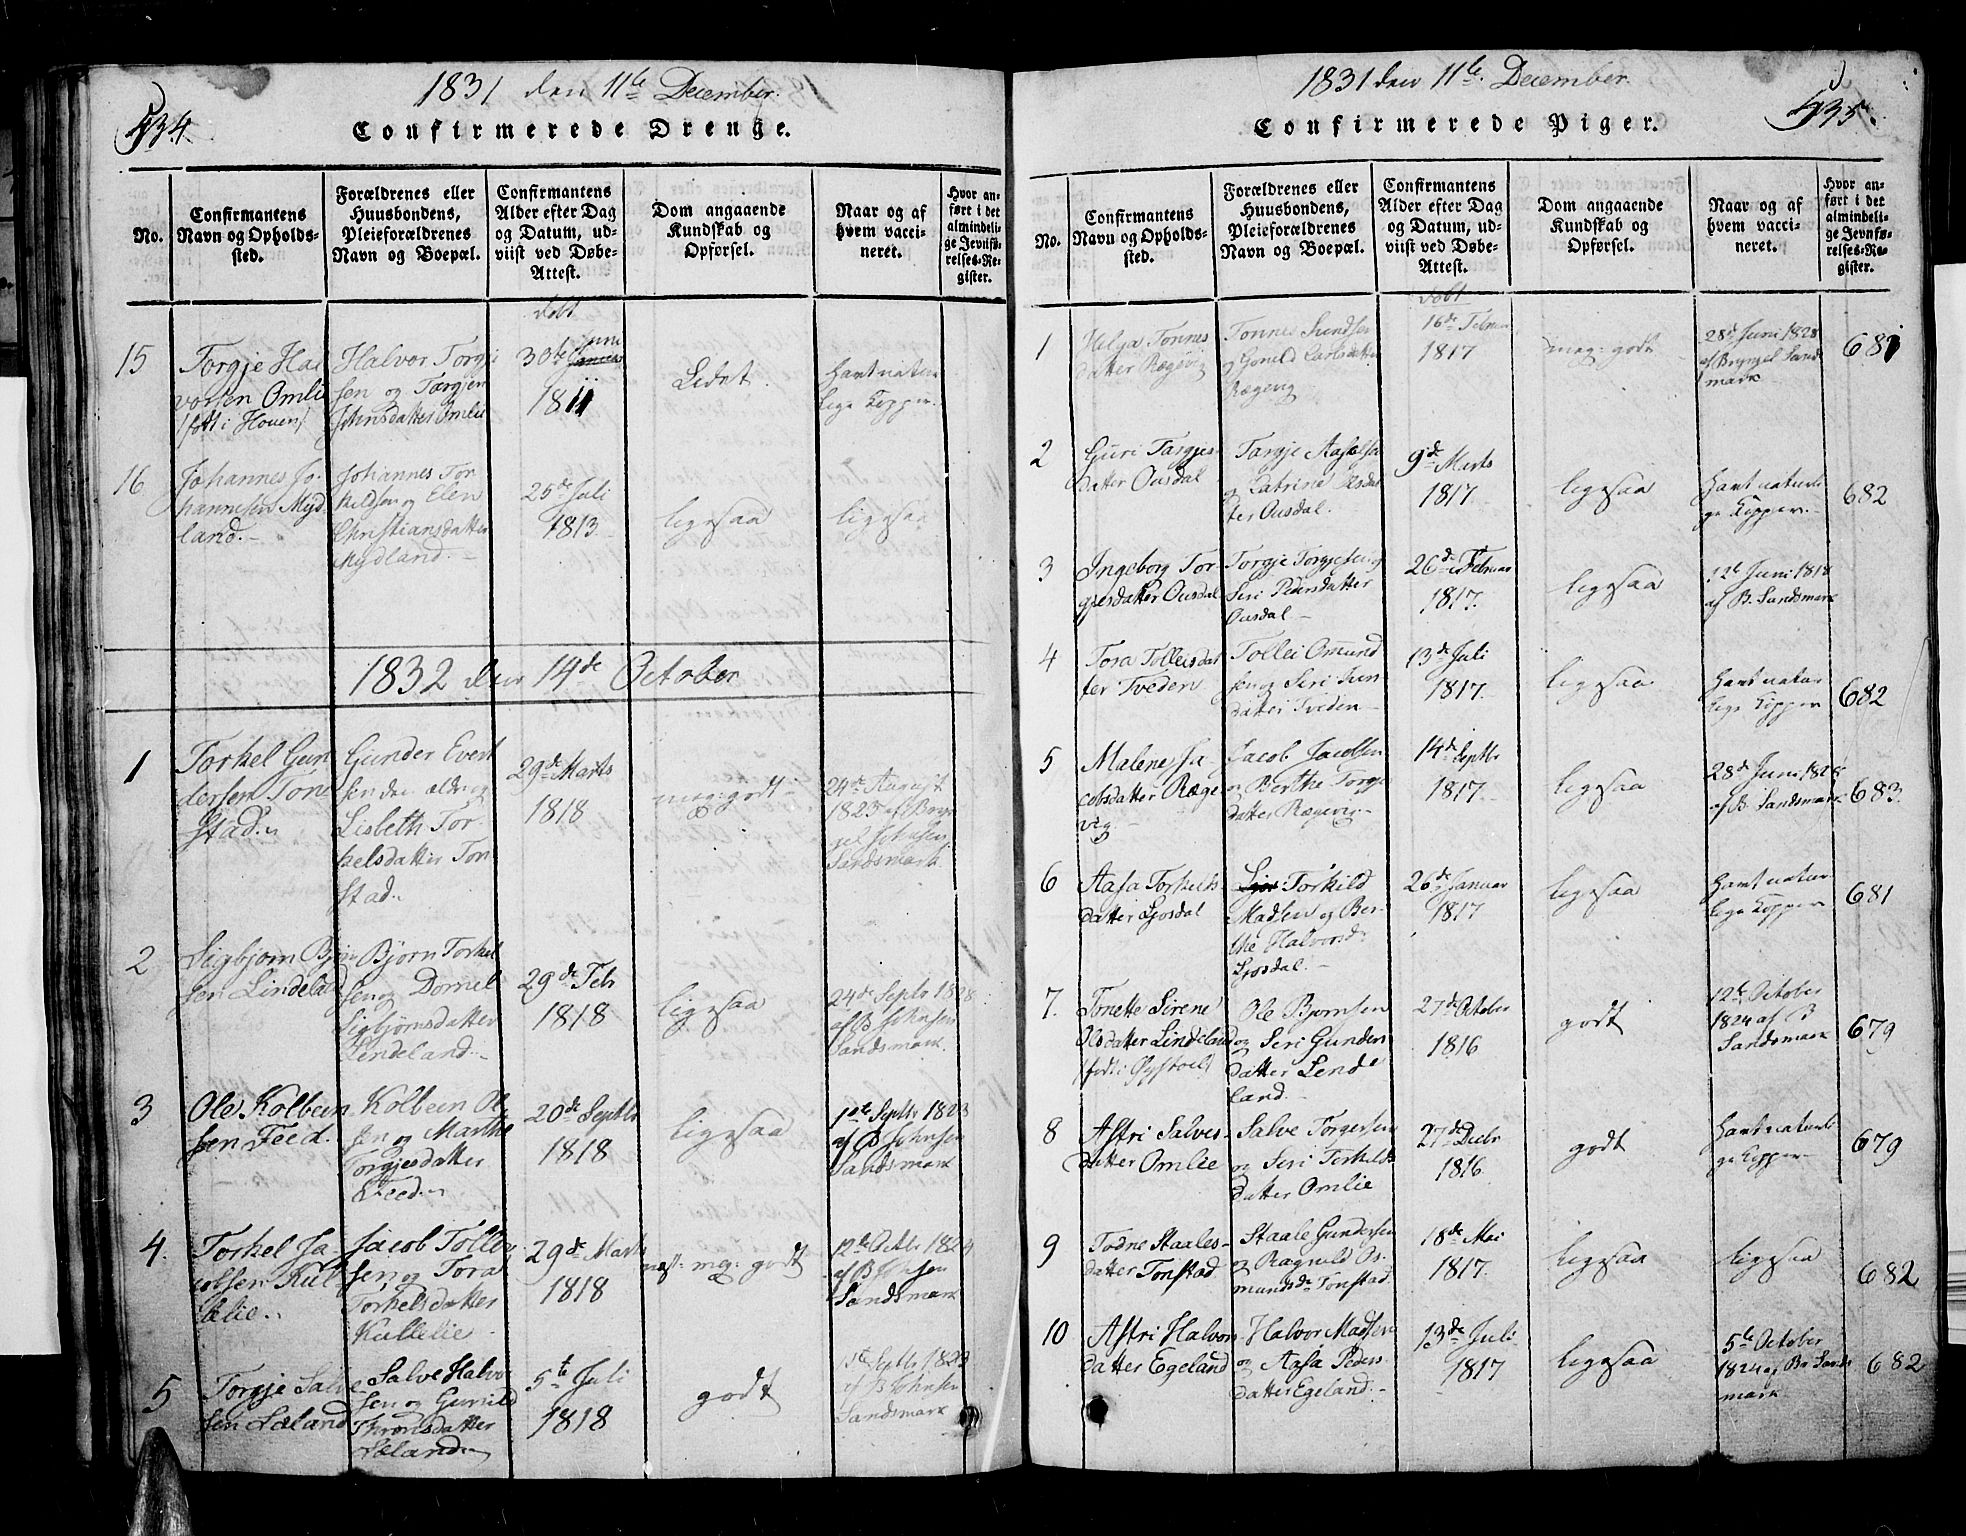 1831 den 11te December.
534.
Confirmerede Drenge.
No.
Confirmantens
Navn og Opholds-
sted.
Forældrenes eller
Huusbondens,
Pleieforældrenes
Navn og Boepæl.
Confirmantens
Alder efter Dag
og Datum, ud-
viist ved Døbe-
Attest.
Dom angaaende
Kundskab og
Opførsel.
Naar og af
hvem vacci-
neret.
Hvor an-
ført i det
almindeli-
ge Jevnfø-
relses-Re-
gister.
døbt
15
Torgje Hal
vorsen Omlie
/født i Houen/
Halvor Torgje
sen og Torgjer
Johnsdatter Omlie
30te Juni
1811
Lidet.
Havt natur
lige Kopper.
16
Johannes Jo-
hannesen Myd
land.-
Johannes Tor
kildsen og Elen
Christiansdatter
Mydland.-
25de Juli
1813
ligesaa
ligesaa
1832 den 14de October
1
Torkel Gun
dersen Ton
stad.
Gunder Evert
sen den ældre og
Lisbeth Tor-
kelsdatter Ton
stad.
29de Marts
1818
meg: godt
24de August
1823 af Bryn
gel Johnsen
Sandsmark
2
Sigbjørn Bjørn
sen Lindeland
Bjørn Torkel
sen og Dornel
Sigbjørnsdatter
Lindeland.
29de Febr
1818
ligesaa
24de Septbr 1828
af B Johnsen
Sandsmark.
3
Ole Kolbeen
sen Feed.
Kolbeen Ol
sen og Marthe
Torgjesdatter
Feed.
20de Septbr
1818
ligesaa
1ste Septbr 1823
af B Johnsen
Sandsmark
4.
Torkel Ja-
cobsen Kul
lelie.
Jacob Tolle
sen og Tora
Torkelsdatter
Kullelie
29de Marts
1818
næst meg: godt
12te Octbr 1824
af B Johnsen
Sandsmark
5
Torgje Salve-
sen Læland
Salve Halvo
sen og Gunild
Thronsdatter
Læland.
5te Juli
1818
godt
1ste Septbr 1823
af B Johnsen
Sandsmark
1831 den 11te December.
535.
Confirmerede Piger.
No.
Confirmantens
Navn og Opholds-
sted.
Forældrenes eller
Huusbondens,
Pleieforældrenes
Navn og Boepæl.
Confirmantens
Alder efter Dag
og Datum, ud-
viist ved Døbe-
Attest.
Dom angaaende
Kundskab og
Opførsel.
Naar og af
hvem vacci-
neret.
Hvor an-
ført i det
almindeli-
ge Jevnfø-
relses-Re-
gister.
døbt
1
Helga Tønnes
datter Rægevig
Tønnes Sundsen
og Gunild Carlsdatter
Rægevig
16de Februar
1817
meg: godt
28de Juni 1828
af Bryngel Sand
mark
681
2
Guri Targjes
datter Ousdal
Targje Aslaksen
og Catrine
ter Ousdal.
9de Marts
1817
ligesaa
Havt naturli
ge Kopper.
682
3
Ingeborg Tor-
gjesdatter Ousdal
Torgje Torgjesen og
Seri Pedersdatter
Ousdal
26de Februar
1817.
ligesaa
12te Juni 1818
af B. Sandsmark
4
Tora Tolleisdat
ter Tveden
Tollei Omund
sen og Seri Sun
datter Tveden
13de Juli
1817
ligesaa
Havt natur
lige Kopper
682
5
Malene Ja-
cobsdatter Ræge
vig
Jacob Jacobsen
og Berthe Torgje
datter Rægevig
14de Septbr
1817
ligesaa
28de Juni 1828
af B. Sandsmark
683.
6
Aasa Torkelds
datter Ljosdal
Torkild
Madsen og Ber-
the Halvorsd:
Ljosdal.
26de Januar
1817
ligesaa
Havt natur
lige Kopper
681
7.
Tonette Sirene
Olsdatter Lindeland
Ole Bjørnsen
og Seri Gunders
datter Linde
land.
27de October
1816
godt
12te October
1824 af B
Sandsmark
679
8
Astri Salves-
datter Omlie
Salve Torgersen
og Seri Torkelds
datter Omlie
27de Decbr
1816
godt
Havt naturli
ge Kopper
679
9
Todne Staales-
datter Tonstad
Staale Gundersen
og Ragnild Os-
mundsd: Tonstad.
18de Mai
1817
ligesaa
ligesaa
682
10
Astri Halvors
datter Egeland
Halvor Madsen
og Aasa Peders-
datter Egeland.
13de Juli
1817
ligesaa
5te October
1824 af Br. Sands
mark
682